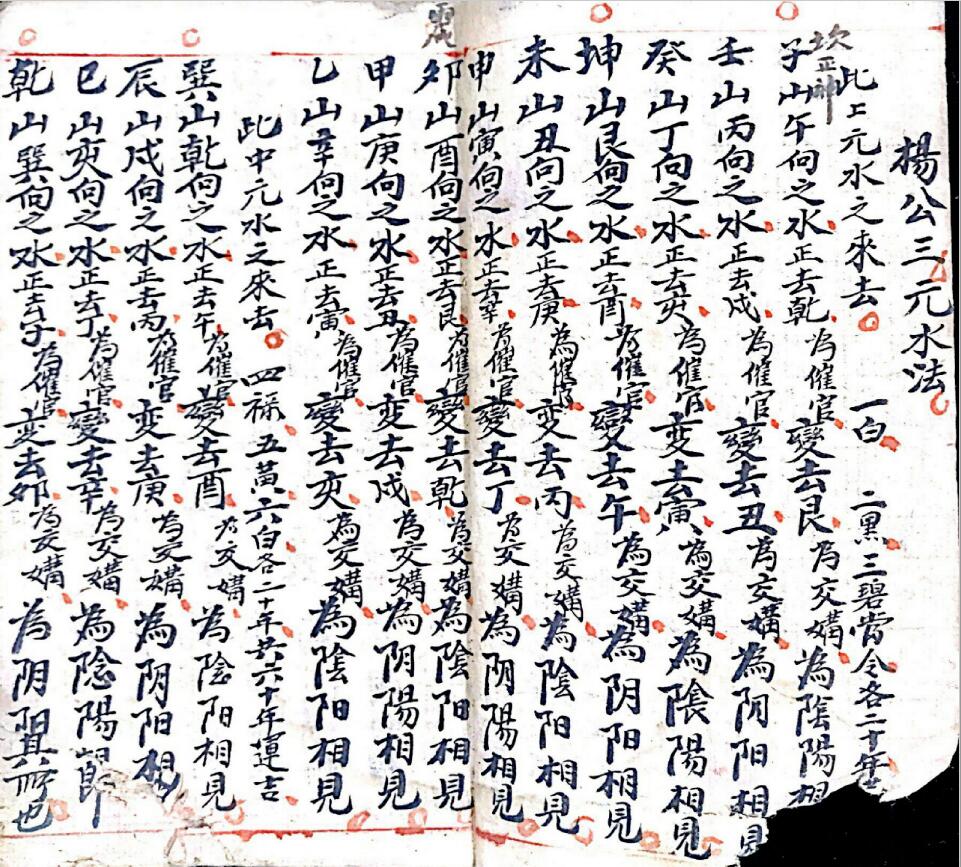 楊公三元水法
此上元水之來去 一白 二黑 三碧当令各二十年
坎正神
子山午向之水正去乾 为催官 變去艮 为交媾 為陰陽相
壬山丙向之水正去戍 為催官 變去丑 為交媾 為阴阳相見
癸山丁向之水正去亥 為催官 变去寅 為交媾 為陰陽相見
坤山艮向之水正去酉 為催官 變去午 為交媾 為阴阳相見
未山丑向之水正去庚 為催官 变去丙 為交媾 為陰阳相見
申山寅向之水正去辛 為催官 變去丁 為交媾 為阴陽相見
震
夘山酉向之水正去艮 為催官 變去乾 為交媾 為陰阳相見
甲山庚向之水正去丑 為催官 变去戍 為交媾 為阴陽相見
乙山辛向之水正去寅 為催官 變去亥 為交媾 為陰阳相見
此中元水之來去 四祿五黃六白各二十年共六十年運吉
巽山乾向之水正去午 為催官 變去酉 为交媾 為陰阳相見
辰山戍向之水正去丙 為催官 变去庚 為交媾 為阴阳相見
巳山亥向之水正去丁 為催官 變去辛 為交媾 為陰陽
乾山巽向之水正去子 為催官 变去夘 為交媾 為阴阳其所也